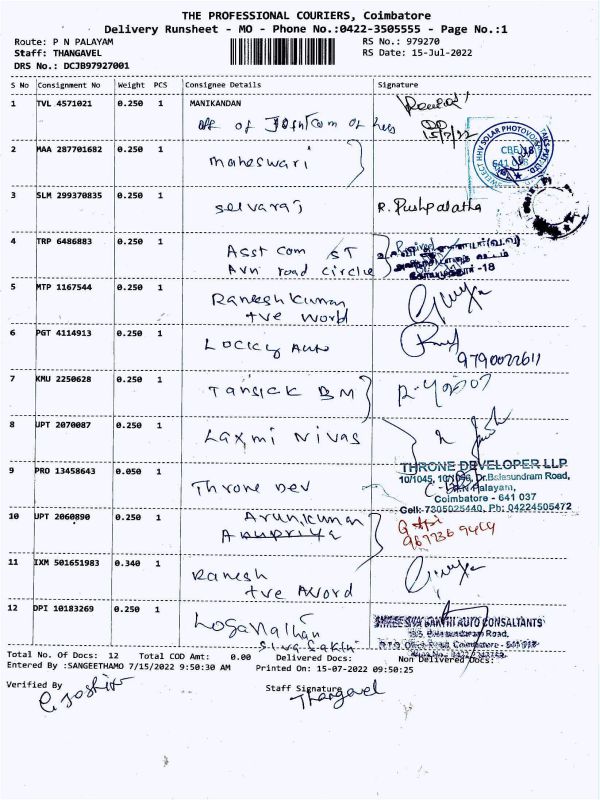 THE PROFESSIONAL COURIERS, Coimbatore
Delivery Runsheet - MO - Phone No.:0422-3505555 - Page No.:1
Route: P N PALAYAM RS No.: 979270
Staff: THANGAVEL RS Date: 15-Jul-2022
DRS No.: DCJB97927001
S No Consignment No Weight PCS Consignee Details Signature
1 TVL 4571021 0.250 1 MANIKANDAN
off of
15/7/22
2 MAA 287701682 0.250 1 Maheswari
SOLAR PHOTOVOLTAICS PVT. LTD.
3 SLM 299370835 0.250 1 Selvaraj R. Pushpalatha
4 TRP 6486883 0.250 1 Asst Com ST
Avn road circle
-18
5 MTP 1167544 0.250 1 Ramesh Kumar
+ve world
6 PGT 4114913 0.250 1 Locky Auto
9790022611
7 KMU 2250628 0.250 1 Tansick BM
8 UPT 2070087 0.250 1 Laxmi Nivas
THRONE DEVELOPER LLP
9 PRO 13458643 0.050 1 Throne Dev
10/1045, 10/1046, Dr.Balasundram Road,
P.N.Palayam,
Coimbatore - 641 037
Cell: 7305025440, Ph: 04224505472
10 UPT 2060890 0.250 1 Arunkumar
Anupriya
11 IXM 501651983 0.340 1 Ramesh
+ve Word
12 DPI 10183269 0.250 1 Loganathan
Siva Sakthi
SHREE SIVA SAKTHI AUTO CONSALTANTS
Balasundaram Road,
Coimbatore - 641 018
Total No. Of Docs: 12 Total COD Amt: 0.00 Delivered Docs: Non Delivered Docs:
Entered By :SANGEETHAMO 7/15/2022 9:50:30 AM Printed On: 15-07-2022 09:50:25
Verified By Staff Signature
Thangavel